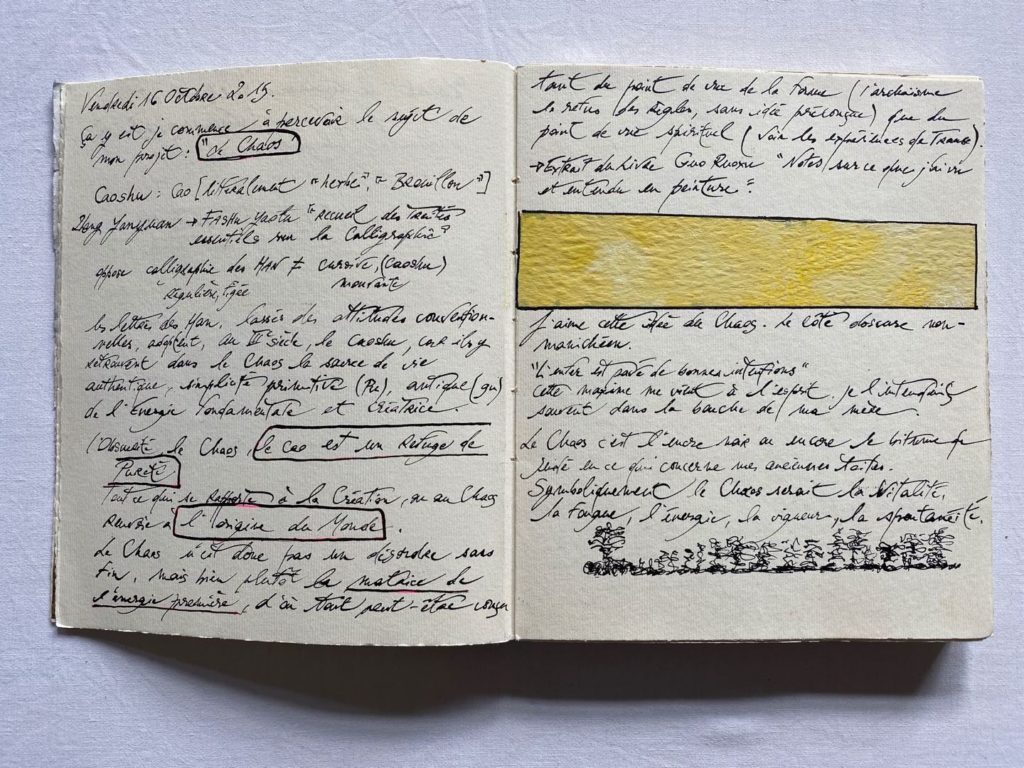 Vendredi 16 Octobre 2015.
Ça y est je commence à percevoir le sujet de
mon projet : "Le Chaos"
Caoshu : Cao [litéralement "herbe", "Brouillon"]
Yangman → Fashu yaolu "recueil des Traités
essentiels sur la Calligraphie"
oppose calligraphie des HAN ≠ cursive, (Caoshu)
régulière, figée mouvante
les lettrés des Han, lassés des attitudes convention-
nelles, adoptent, au IIe siècle, le Caoshu, car il y
retrouvent dans le Chaos la source de vie
authentique, simplicité primitive (Pu), antique (gu)
de l'Energie fondamentale et Créatrice.
(Obscurité le Chaos, le cao est un Refuge de
Pureté
Tout ce qui se Rapporte à la Création, ou au Chaos
Renvoie à l'origine du Monde.
Le Chaos n'est donc pas un désordre sans
fin, mais bien plutôt la matrice de
l'énergie première, d'où tout peut-être conçu
tant du point de vue de la forme (l'archaïsme
le refus des Règles, sans idée préconçue) que du
point de vue spirituel (voir les expériences de Transe).
→ Extrait du Livre Guo Ruoxu "Notes sur ce que j'ai vu
et entendu en peinture"
J'aime cette idée du Chaos. Le côté obscure non-
manichéen.
"L'enfer est pavé de bonnes intentions"
cette maxime me vient à l'esprit. je l'entendais
souvent dans la bouche de ma mère.
Le Chaos c'est l'encre noir ou encore le bitume de
Judée en ce qui concerne mes anciennes toiles.
Symboliquement le Chaos serait la Vitalité,
la fougue, l'énergie, la vigueur, la spontanéité.